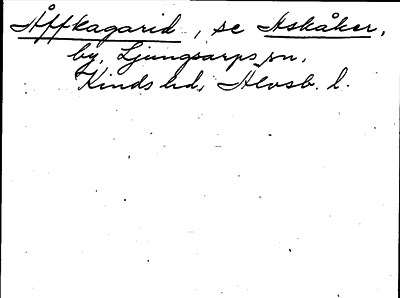 Åffkagarid, se Askåker,
by, Ljungsarps sn,
Kinds hd, Älvsb. l.